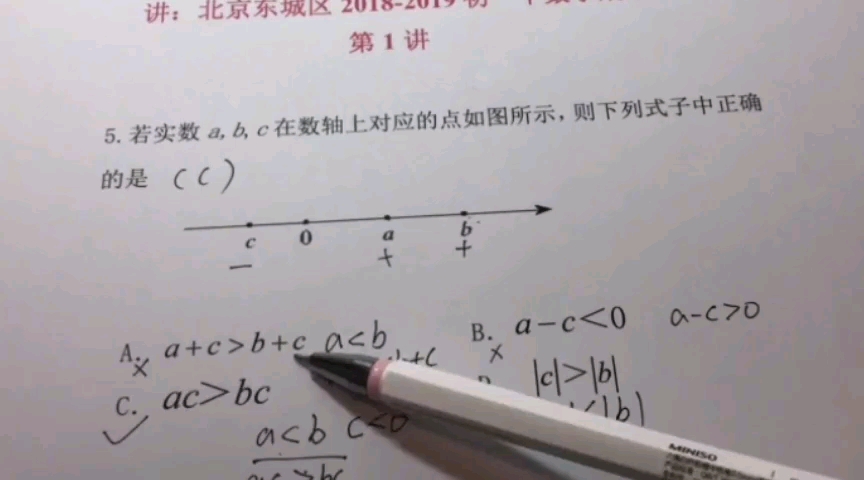 讲：北京东城区 2018-2019 初一
第 1 讲
5. 若实数 a, b, c 在数轴上对应的点如图所示，则下列式子中正确
的是 (C)
c 0 a b
— + +
A. × a+c>b+c a<b
B. × a-c<0 a-c>0
C. ✓ ac>bc
|c|>|b|
<|b|
a<b c<0
ac>bc
MINISO